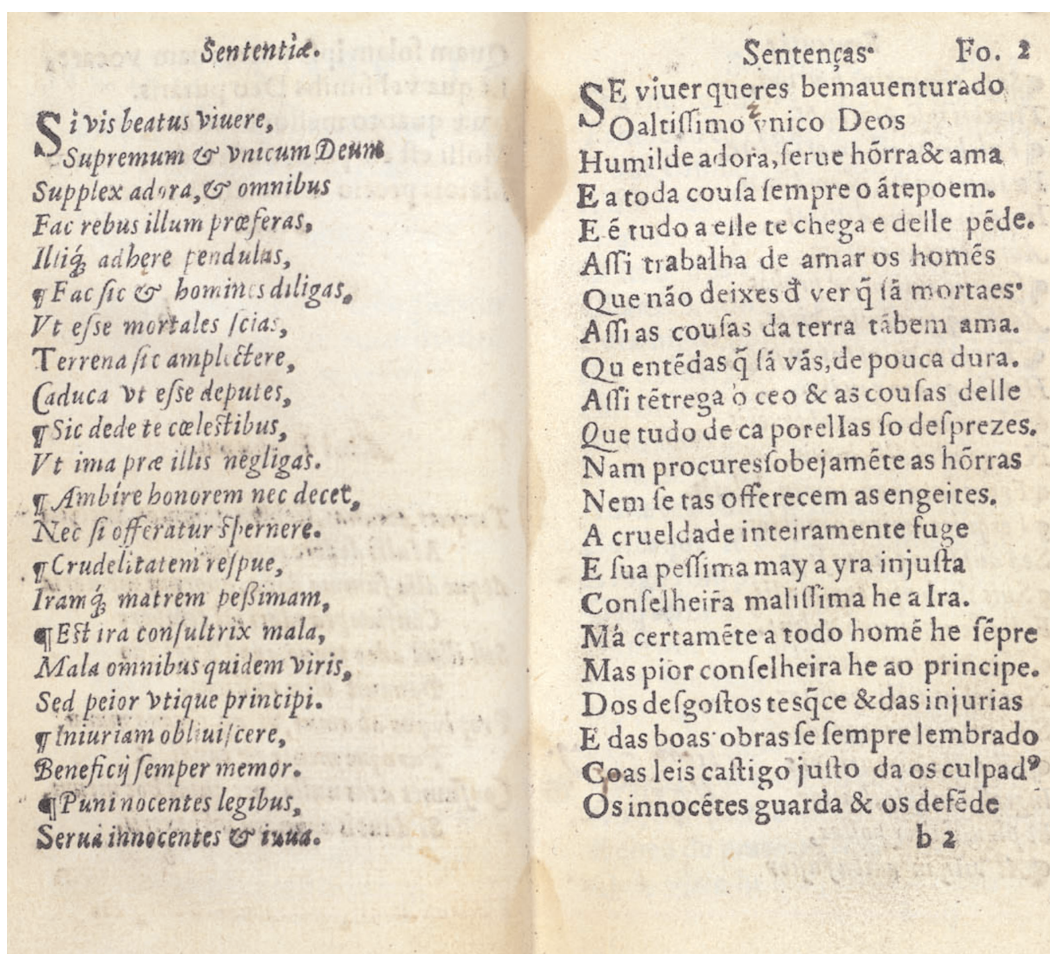 Sententiæ.
Si vis beatus viuere,
Supremum & vnicum Deum
Supplex adora, & omnibus
Fac rebus illum præferas,
Illiq́; adhęre pendulus,
¶ Fac sic & homines diligas,
Vt esse mortales scias,
Terrena sic amplectere,
Caduca vt esse deputes,
¶ Sic dede te cœlestibus,
Vt ima præ illis negligas.
¶ Ambire honorem nec decet,
Nec si offeratur spernere.
¶ Crudelitatem respue,
Iramq́; matrem peßimam,
¶ Est ira consultrix mala,
Mala omnibus quidem viris,
Sed peior vtique principi.
¶ Iniuriam obliuiscere,
Beneficij semper memor.
¶ Puni nocentes legibus,
Serua innocentes & iuua.
Sentenças. Fo. 2
SE viuer queres bemauenturado
O altissimo vnico Deos
Humilde adora, serue hõrra & ama
E a toda cousa sempre o ãtepoem.
E ẽ tudo a elle te chega e delle pẽde.
Assi trabalha de amar os homẽs
Que não deixes đ ver q̃ sã mortaes.
Assi as cousas da terra tãbem ama.
Qu entẽdas q̃ sã vãs, de pouca dura.
Assi tẽtrega ò ceo & as cousas delle
Que tudo de ca porellas so desprezes.
Nam procures sobejamẽte as hõrras
Nem se tas offerecem as engeites.
A crueldade inteiramente fuge
E sua pessima may a yra injusta
Conselheira malissima he a Ira.
Má certamẽte a todo homẽ he sẽpre
Mas pior conselheira he ao principe.
Dos desgostos tesq̃ce & das injurias
E das boas obras se sempre lembrado
Cõas leis castigo justo da os culpadꝰ
Os innocẽtes guarda & os defẽde
b 2